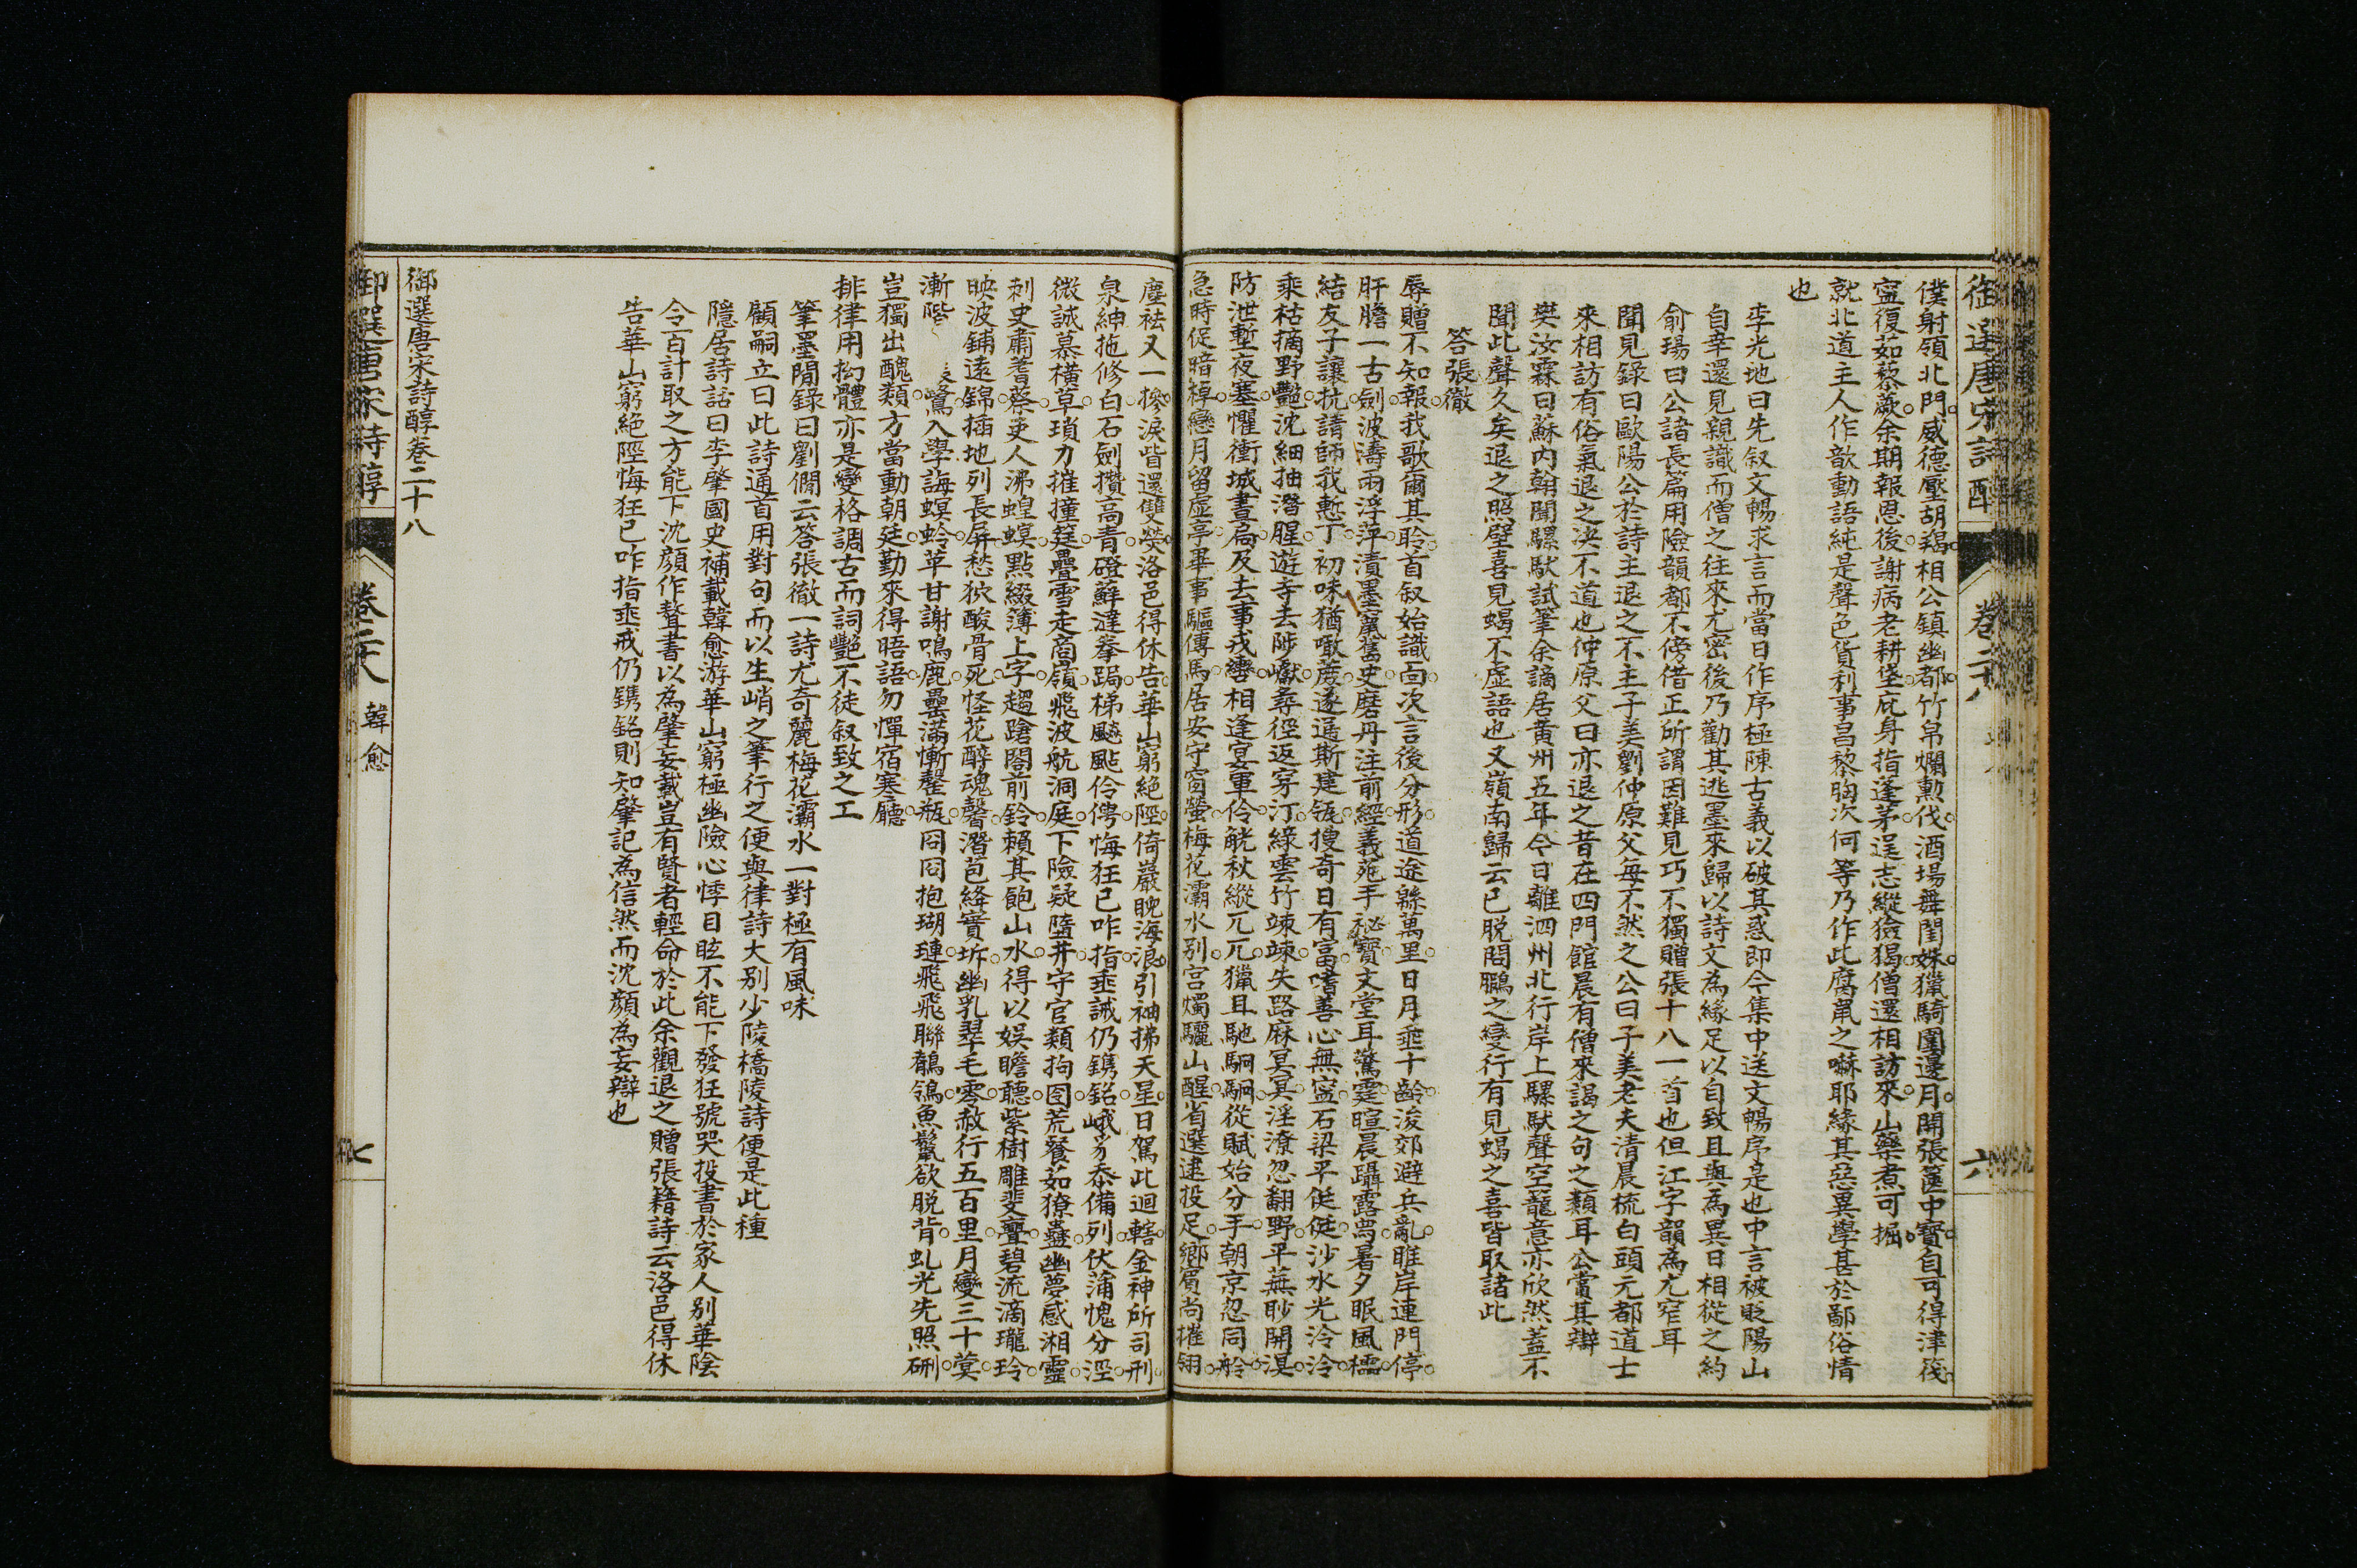 御選唐宋詩醇
卷二十八
六
僕射領北門威德壓胡羯相公鎮幽都竹帛爛勲伐酒場舞閨姝獵騎圍邊月開張篋中寳自可得津筏
寧復茹藜蕨余期報恩後謝病老耕垡庇身指蓬茅逞志縱獫猲僧還相訪來山藥煮可掘
就北道主人作歆動語純是聲色貨利事昌黎胸次何等乃作此腐䑕之嚇耶緣其惡異學甚於鄙俗情
也
李光地曰先叙文暢求言而當日作序極陳古義以破其惑即今集中送文暢序是也中言被貶陽山
自幸還見親識而僧之往來尤密後乃勸其逃墨來歸以詩文為緣足以自致且與為異日相從之約
俞瑒曰公諸長篇用險韻都不傍借正所謂因難見巧不獨贈張十八一首也但江字韻為尤窄耳
聞見錄曰歐陽公於詩主退之不主子美劉仲原父每不然之公曰子美老夫清晨梳白頭元都道士
來相訪有俗氣退之決不道也仲原父曰亦退之昔在四門館晨有僧來謁之句之類耳公賞其辯
樊汝霖曰蘇内翰聞騾馱試筆余謫居黄州五年今日離泗州北行岸上騾馱聲空籠意亦欣然蓋不
聞此聲久矣退之照壁喜見蝎不虚語也又嶺南歸云已脱問鵩之變行有見蝎之喜皆取諸此
答張徹
辱贈不知報我歌爾其聆首叙始識面次言後分形道途緜萬里日月垂十齡浚郊避兵亂睢岸連門停
肝膽一古劍波濤兩浮萍漬墨竄舊史磨丹注前經義苑手秘寳文堂耳驚霆暄晨躡露舄暑夕眠風櫺
結友子讓抗請師我慙丁初味猶噉蔗遂通斯建瓴搜奇日有富嗜善心無寧石梁平侹侹沙水光泠泠
乘枯摘野艶沈細抽潛腥遊寺去陟巘尋徑返穿汀緑雲竹竦竦失路麻冥冥淫潦忽翻野平蕪眇開溟
防泄塹夜塞懼衝城晝扃及去事戎轡相逢宴軍伶觥秋縱兀兀獵旦馳駉駉從賦始分手朝京忽同舲
急時促暗棹戀月留虚亭畢事驅傳馬居安守窗螢梅花灞水别宫燭驪山醒省選逮投足鄉賔尚摧翎
塵袪又一摻淚眥還雙熒洛邑得休告華山窮絶陘倚巖睨海浪引袖拂天星日駕此迴轄金神所司刑
泉紳拖修白石劍攢高青磴蘚澾拳跼梯飈颭伶俜悔狂已咋指垂誡仍鐫銘峨豸忝備列伏蒲愧分涇
微誠慕横草瑣力摧撞筳疊雪走商嶺飛波航洞庭下險疑墮井守官類拘囹荒餐茹獠蠱幽夢感湘靈
刺史肅蓍蔡吏人沸蝗螟點綴簿上字趨蹌閤前鈴賴其飽山水得以娱瞻聽紫樹雕斐亹碧流滴瓏玲
映波鋪遠錦插地列長屏愁狖酸骨死怪花醉魂馨潛苞絳實坼幽乳翠毛零赦行五百里月變三十蓂
漸階 鷺入學誨螟蛉苹甘謝鳴鹿罍滿慚罄瓶冏冏抱瑚璉飛飛聯鶺鴒魚鬣欲脱背虬光先照硎
豈獨出醜類方當動朝廷勤來得晤語勿憚宿寒廳
排律用拗體亦是變格調古而詞艶不徒叙致之工
筆墨閒錄曰劉僴云答張徹一詩尤奇麗梅花灞水一對極有風味
顧嗣立曰此詩通首用對句而以生峭之筆行之便與律詩大别少陵橋陵詩便是此種
隱居詩話曰李肇國史補載韓愈游華山窮極幽險心悸目眩不能下發狂號哭投書於家人别華陰
令百計取之方能下沈顔作聱書以為肇妄載豈有賢者輕命於此余觀退之贈張籍詩云洛邑得休
告華山窮絶陘悔狂已咋指垂戒仍鐫銘則知肇記為信然而沈顔為妄辯也
御選唐宋詩醇卷二十八
御選唐宋詩醇
卷二十八
韓愈
七